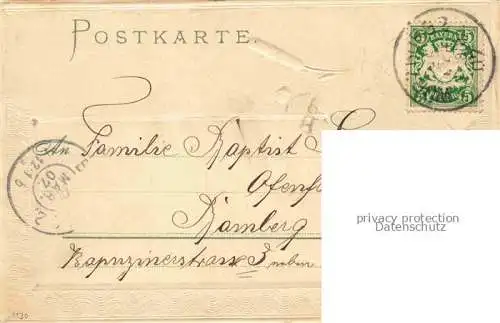 POSTKARTE.
BAYERN
5 5
An Familie Baptist
Ofenf
Bamberg
Kapuzinerstrasse 3 neben
MAR
07
12-1
privacy protection
Datenschutz
1130